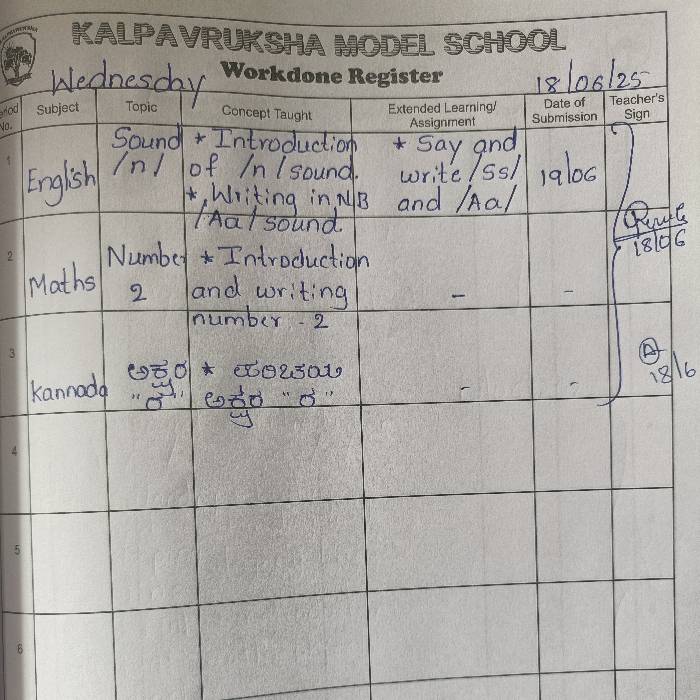 KALPAVRUKSHA MODEL SCHOOL
Workdone Register
Wednesday
18/06/25
Subject
Topic
Concept Taught
Extended Learning/
Assignment
Date of
Submission
Teacher's
Sign
No.
1
English
Sound
/n/
* Introduction
of /n/ sound.
* Writing in NB
/Aa/ sound.
* Say and
write /Ss/
and /Aa/
19/06
18/06
2
Maths
Number
2
* Introduction
and writing
number - 2
-
-
3
Kannada
ಅಕ್ಷರ
"ರ"
* ಪರಿಚಯ
ಅಕ್ಷರ "ರ"
-
-
18/6
4
5
6